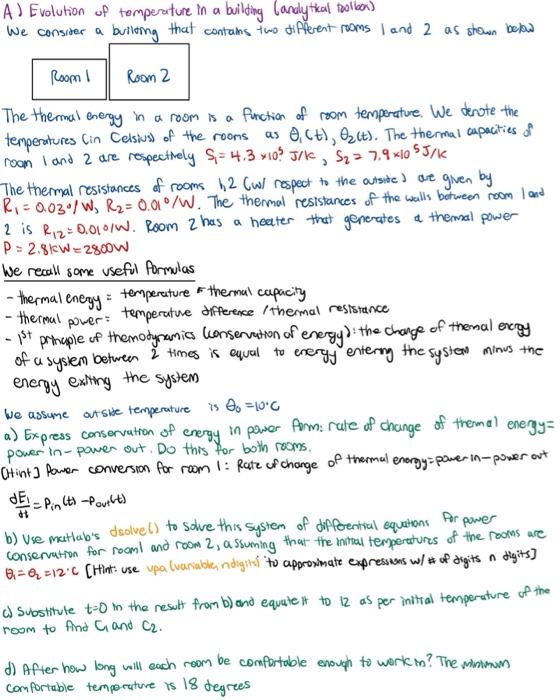 A) Evolution of temperature in a building (analytical toolbox)
We consider a building that contains two different rooms 1 and 2 as shown below
Room 1
Room 2
The thermal energy in a room is a function of room temperature. We denote the
temperatures (in Celsius) of the rooms as θ₁(t), θ₂(t). The thermal capacities of
room 1 and 2 are respectively S₁ = 4.3 x10⁵ J/K, S₂ = 7.9 x10⁵ J/K
The thermal resistances of rooms 1,2 (w/ respect to the outside) are given by
R₁ = 0.03°/W, R₂ = 0.01°/W. The thermal resistances of the walls between room 1 and
2 is R₁₂ = 0.01°/W. Room 2 has a heater that generates a thermal power
P = 2.8kW = 2800W
We recall some useful formulas
- thermal energy = temperature * thermal capacity
- thermal power = temperature difference / thermal resistance
- 1st principle of themodynamics (conservation of energy): the change of themal energy
of a system between 2 times is equal to energy entering the system minus the
energy exiting the system
We assume outside temperature is θ₀ = 10°C
a) Express conservation of energy in power form: rate of change of thermal energy =
power in - power out. Do this for both rooms.
[Hint] Power conversion for room 1: Rate of change of thermal energy = power in - power out
dE₁/dt = Pin(t) - Pout(t)
b) Use matlab's dsolve() to solve this system of differential equations for power
conservation for room 1 and room 2, assuming that the initial temperatures of the rooms are
θ₁ = θ₂ = 12°C [Hint: use vpa(variable, ndigits) to approximate expressions w/ # of digits n digits]
c) Substitute t=0 in the result from b) and equate it to 12 as per initial temperature of the
room to find C₁ and C₂.
d) After how long will each room be comfortable enough to work in? The minimum
comfortable temperature is 18 degrees